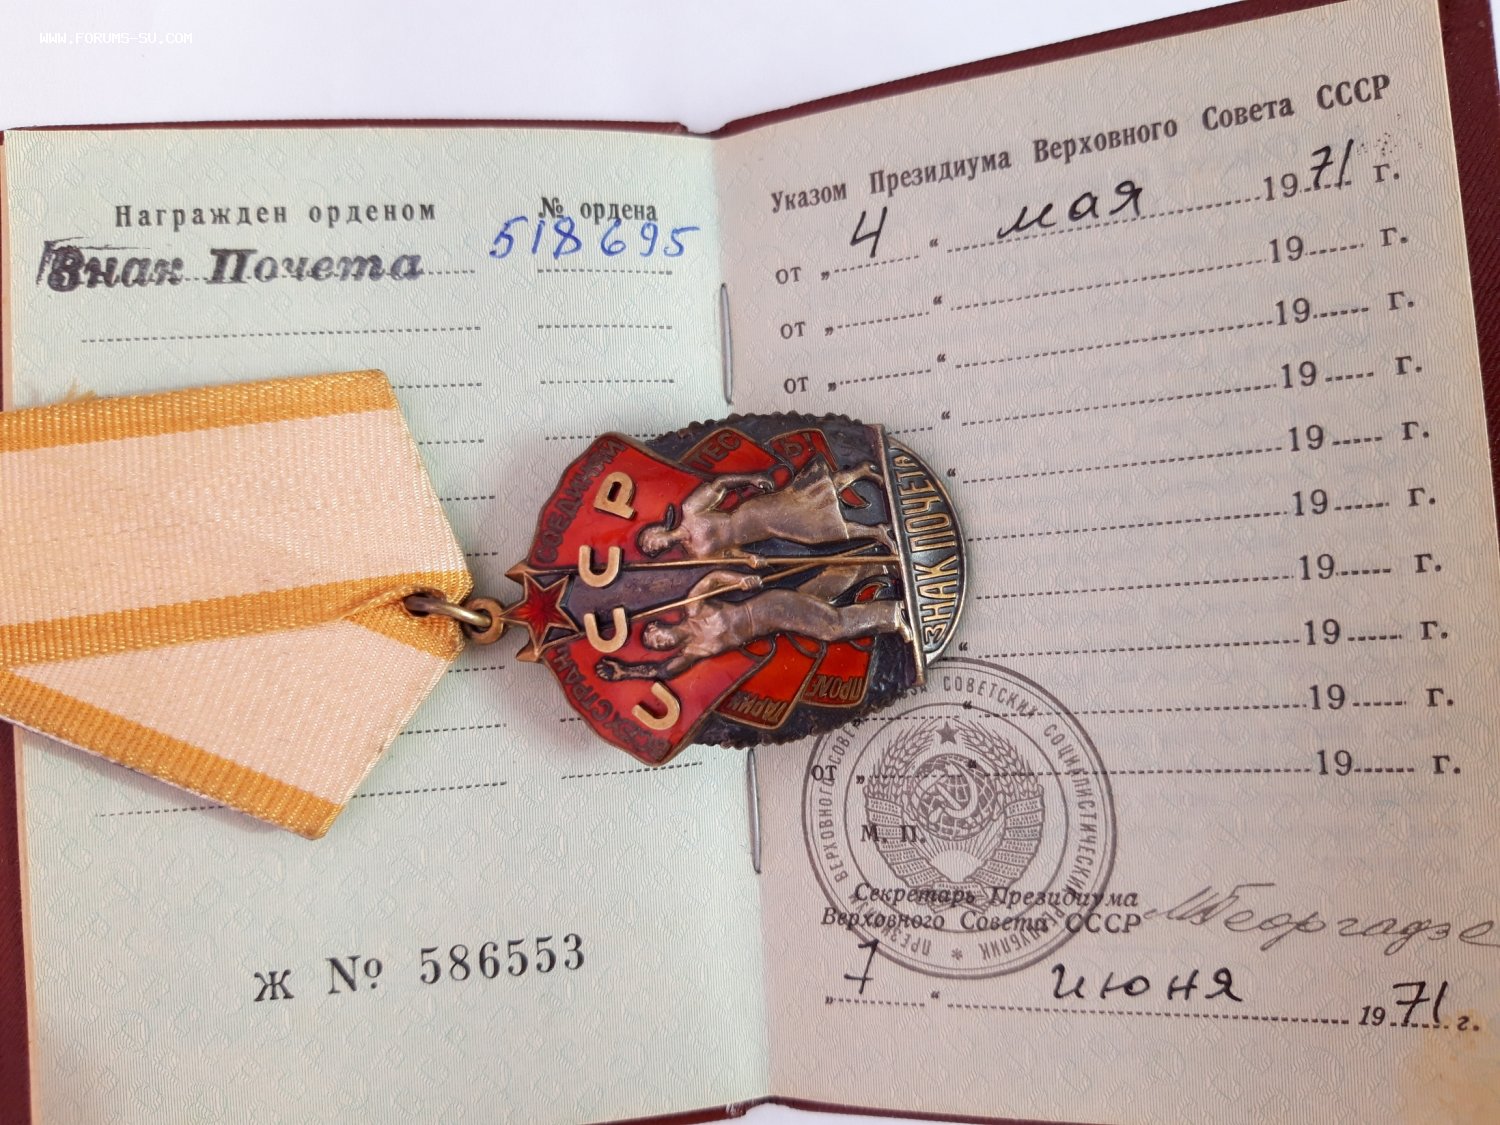 WWW.FORUMS-SU.COM
Награжден орденом
№ ордена
Знак Почета
518695
Ж № 586553
Указом Президиума Верховного Совета СССР
от „ 4 “ мая 1971 г.
от „ “ 19 г.
от „ “ 19 г.
“ 19 г.
“ 19 г.
19 г.
19 г.
“ 19 г.
“ 19 г.
от „ “ 19 г.
М. П.
Секретарь Президиума
Верховного Совета СССР
МГеоргадзе
„ 7 “ июня 1971 г.
ПРЕЗИДИУМ ВЕРХОВНОГО СОВЕТА СОВЕТСКИХ СОЦИАЛИСТИЧЕСКИХ РЕСПУБЛИК
ПРОЛЕ
ТАРИИ
ВСЕХ СТРАН
СОЕДИНЯЙ
ТЕС
Ь!
СССР
ЗНАК ПОЧЕТА